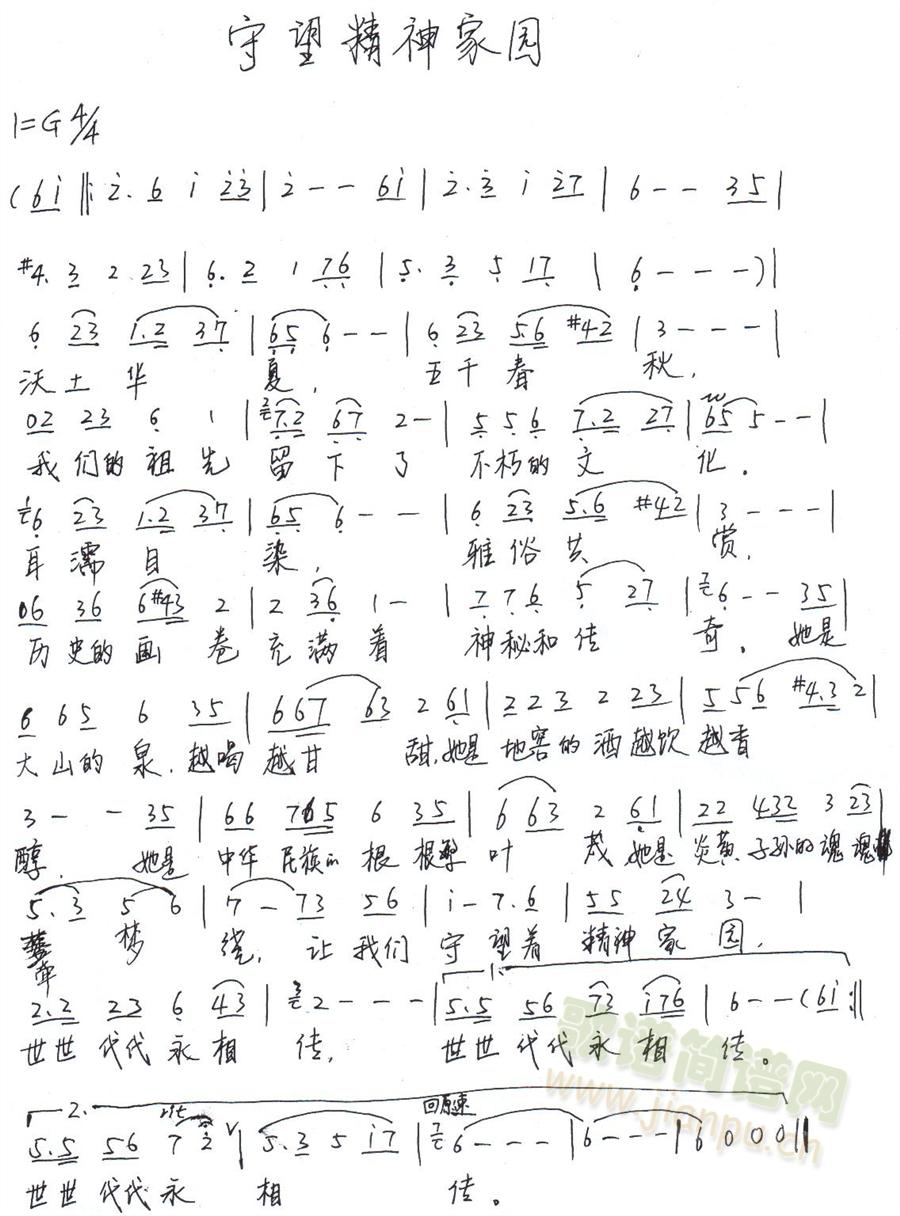 守望精神家园
1=G 4/4
(6i ‖: 2. 6 i 23 | 2 - - 6i | 2. 3 i 27 | 6 - - 35 |
#4. 3 2 23 | 6. 2 1 76 | 5. 3 5 17 | 6 - - - ) |
6 23 1.2 37 | 65 6 - - | 6 23 56 #42 | 3 - - - |
沃土华 夏, 五千春 秋,
02 23 6 1 | 7.2 67 2 - | 5 5 6 7.2 27 | 65 5 - - |
我们的祖先 留下了 不朽的文 化。
6 23 1.2 37 | 65 6 - - | 6 23 5.6 #42 | 3 - - - |
耳濡目 染, 雅俗共 赏,
06 36 6#43 2 | 2 36 1 - | 7 7 6 5 27 | 6 - - 35 |
历史的画卷 充满着 神秘和传 奇。她是
6 65 6 35 | 667 63 2 61 | 2 2 3 2 23 | 5 56 #4.3 2 |
大山的泉,越喝越甘 甜,她是 地窖的酒越饮越香
3 - - 35 | 66 765 6 35 | 6 63 2 61 | 22 432 3 23 |
醇, 她是 中华民族的根 根 叶 茂 她是 炎黄子孙的魂 魂
5.3 5 6 | 7 - 73 56 | i - 7.6 | 55 24 3 - |
牵 梦 绕, 让我们 守望着 精神家园,
1.
2.2 23 6 43 | 2 - - - | 5.5 56 73 i76 | 6 - - (6i :‖
世世代代永相 传, 世世代代永相 传。
歌谱简谱网
www.jianpu.cn
2. rit 回原速
5.5 56 7 2 | 5.3 5 i7 | 6 - - - | 6 - - - | 6 0 0 0 ‖
世世代代永 相 传。